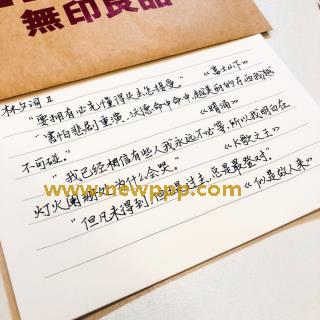 無印良品
林夕词 Ⅱ
“要拥有必先懂得失去怎接受。” 《富士山下》
“害怕悲剧重演，沃德命中命中，越美丽的东西我越
不可碰。” 《暗涌》
“我已经相信有些人我永远不必等，所以我明白在
灯火阑珊处为什么会哭。” 《K歌之王》
“但凡未得到，但凡是过去，总是最登对。” 《似是故人来》
www.newppp.com